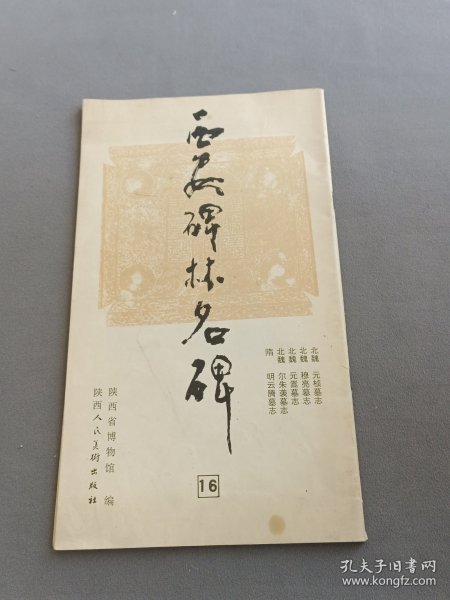 西安碑林名碑
北魏 元桢墓志
北魏 穆亮墓志
北魏 元嵩墓志
北魏 尔朱袭墓志
隋 明云腾墓志
陕西省博物馆 编
陕西人民美術出版社
16
孔夫子旧书网
www.kongfz.com